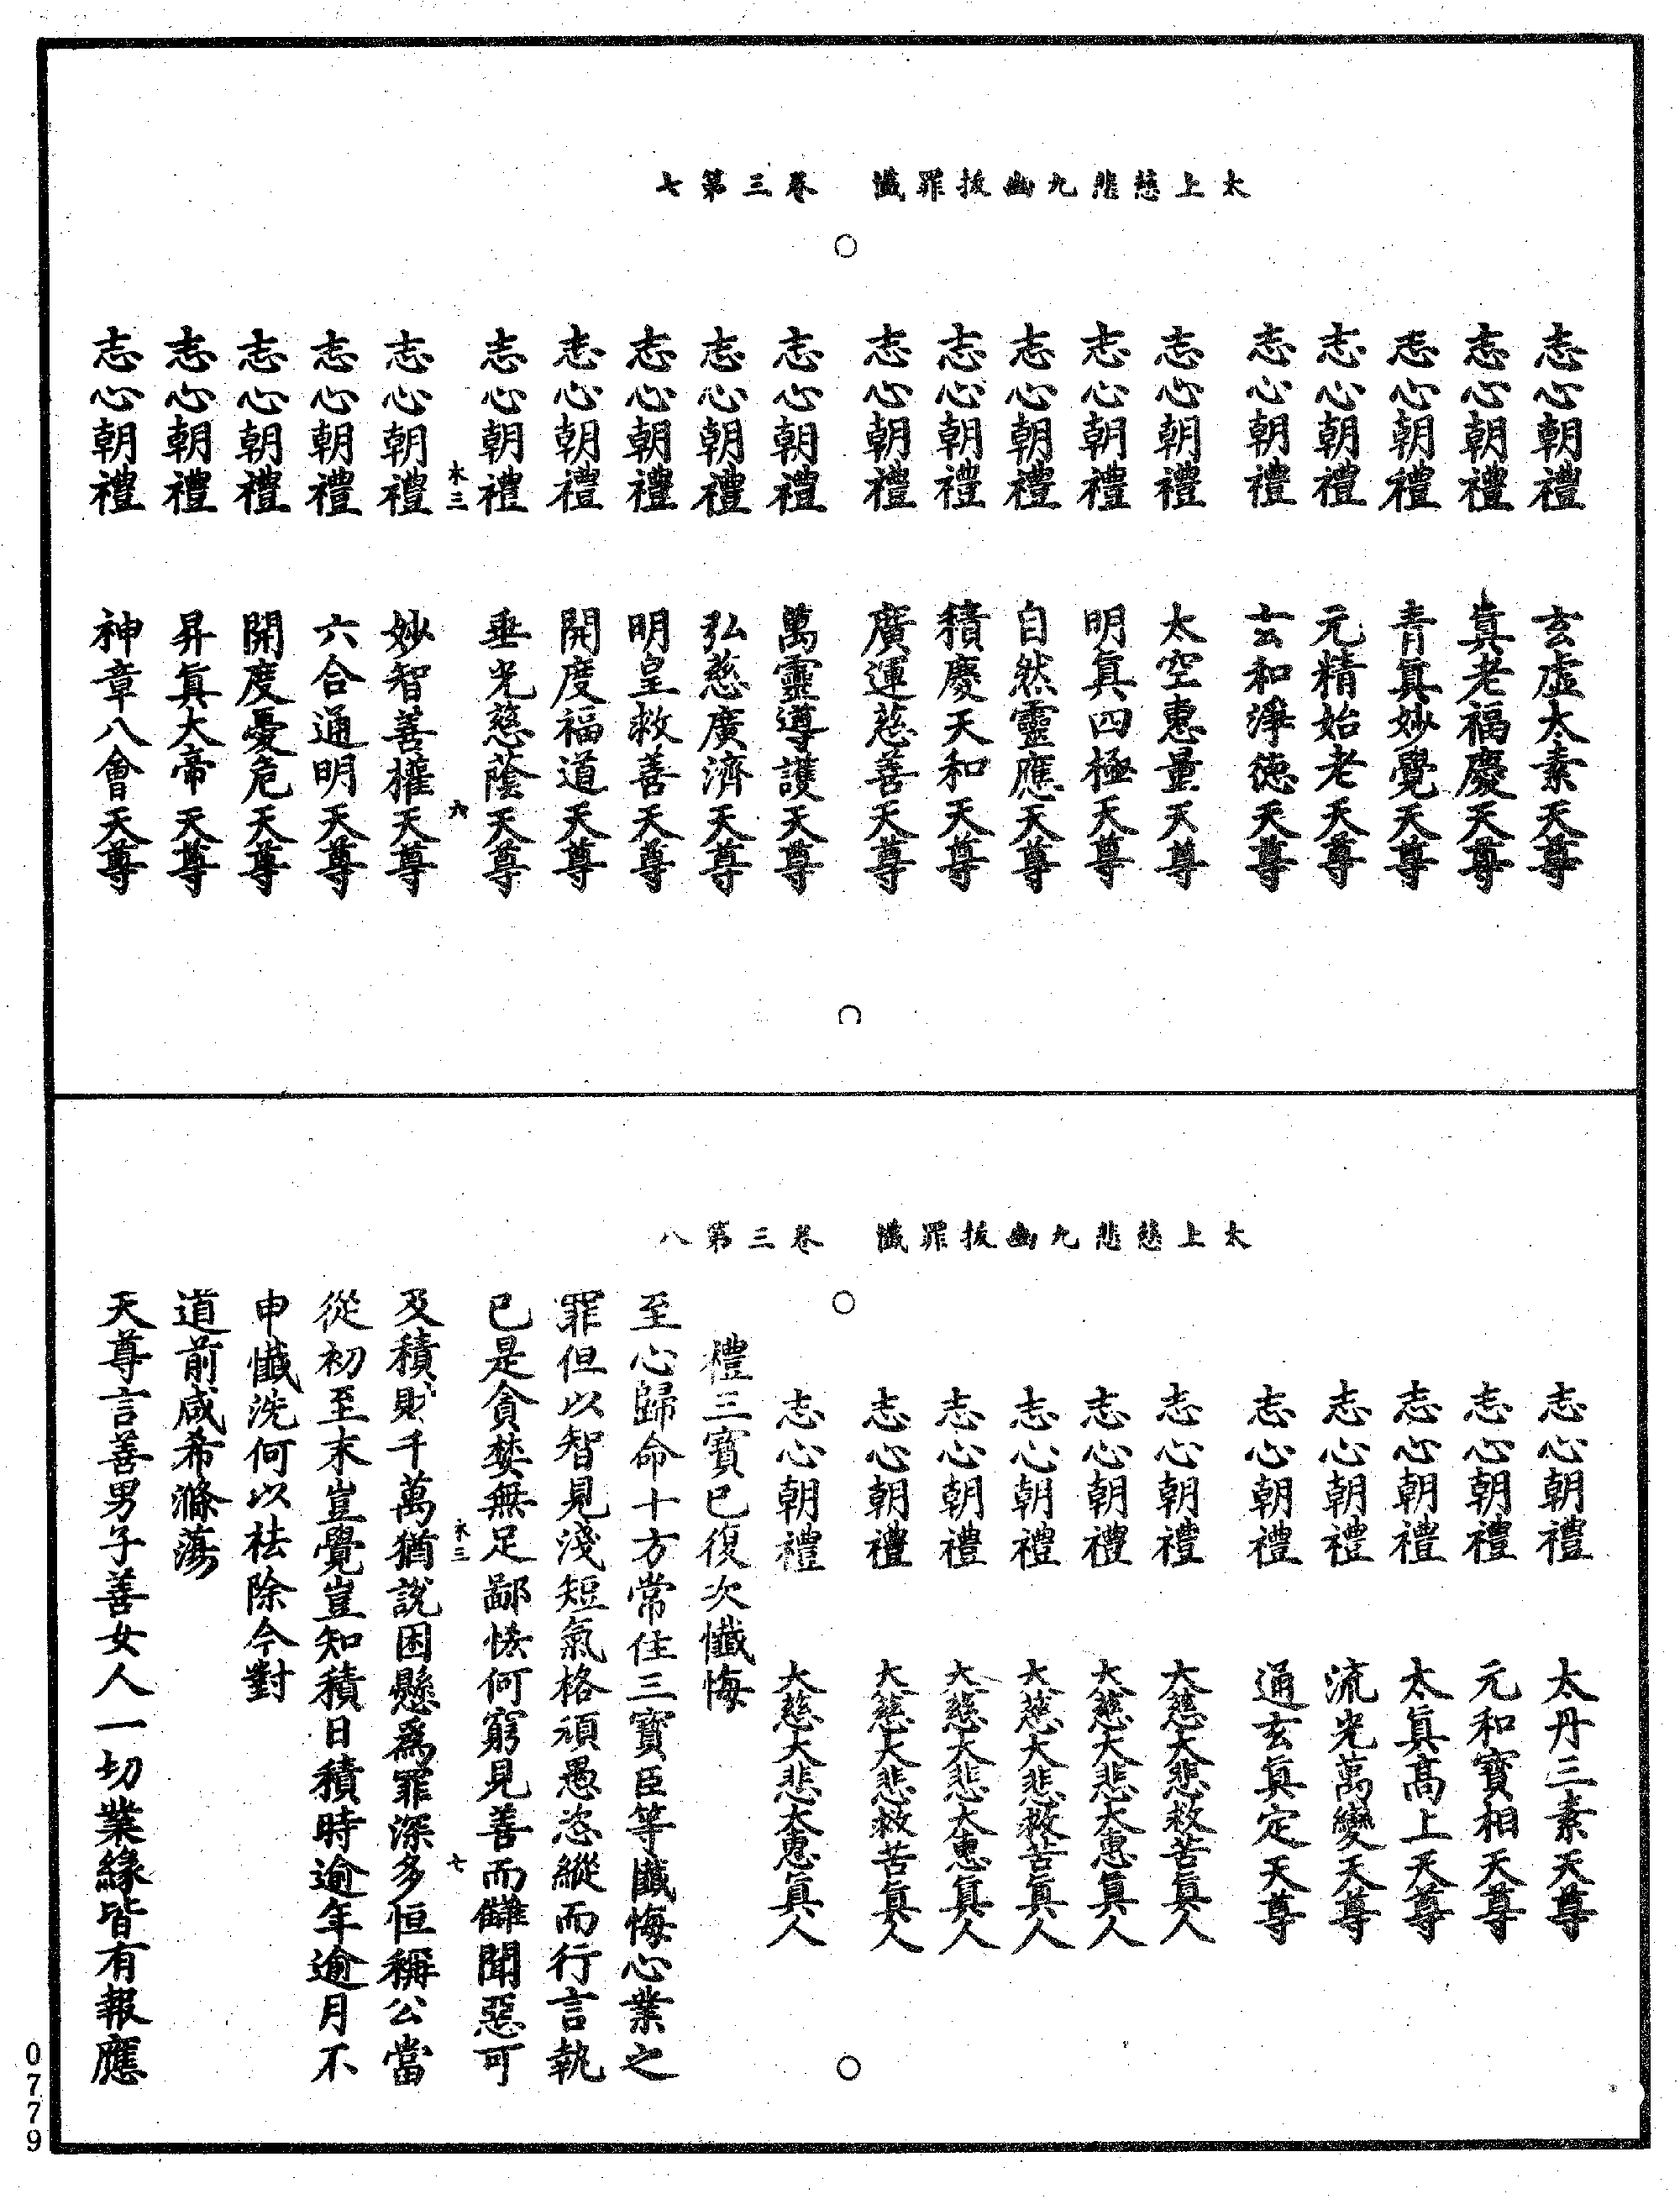 太上慈悲九幽拔罪懺　卷三第七
志心朝禮　玄虛太素天尊
志心朝禮　真老福慶天尊
志心朝禮　青真妙覺天尊
志心朝禮　元精始老天尊
志心朝禮　玄和淨德天尊
志心朝禮　太空惠量天尊
志心朝禮　明真四極天尊
志心朝禮　自然靈應天尊
志心朝禮　積慶天和天尊
志心朝禮　廣運慈善天尊
志心朝禮　萬靈遵護天尊
志心朝禮　弘慈廣濟天尊
志心朝禮　明皇救善天尊
志心朝禮　開度福道天尊
志心朝禮　垂光慈蔭天尊
水三　六
志心朝禮　妙智善權天尊
志心朝禮　六合通明天尊
志心朝禮　開度憂危天尊
志心朝禮　昇真大帝天尊
志心朝禮　神章八會天尊
太上慈悲九幽拔罪懺　卷三第八
志心朝禮　太丹三素天尊
志心朝禮　元和寶相天尊
志心朝禮　太真高上天尊
志心朝禮　流光萬變天尊
志心朝禮　通玄真定天尊
志心朝禮　大慈大悲救苦真人
志心朝禮　大慈大悲大惠真人
志心朝禮　大慈大悲救苦真人
志心朝禮　大慈大悲大惠真人
志心朝禮　大慈大悲救苦真人
志心朝禮　大慈大悲大惠真人
禮三寶已復次懺悔
至心歸命十方常住三寶臣等懺悔心業之
罪但以智見淺短氣格頑愚恣縱而行言執
已是貪婪無足鄙恡何窮見善而讎聞惡可
水三　七
及積財千萬猶說困懸為罪深多恒稱公當
從初至末豈覺豈知積日積時逾年逾月不
申懺洗何以祛除今對
道前咸希滌蕩
天尊言善男子善女人一切業緣皆有報應
0779